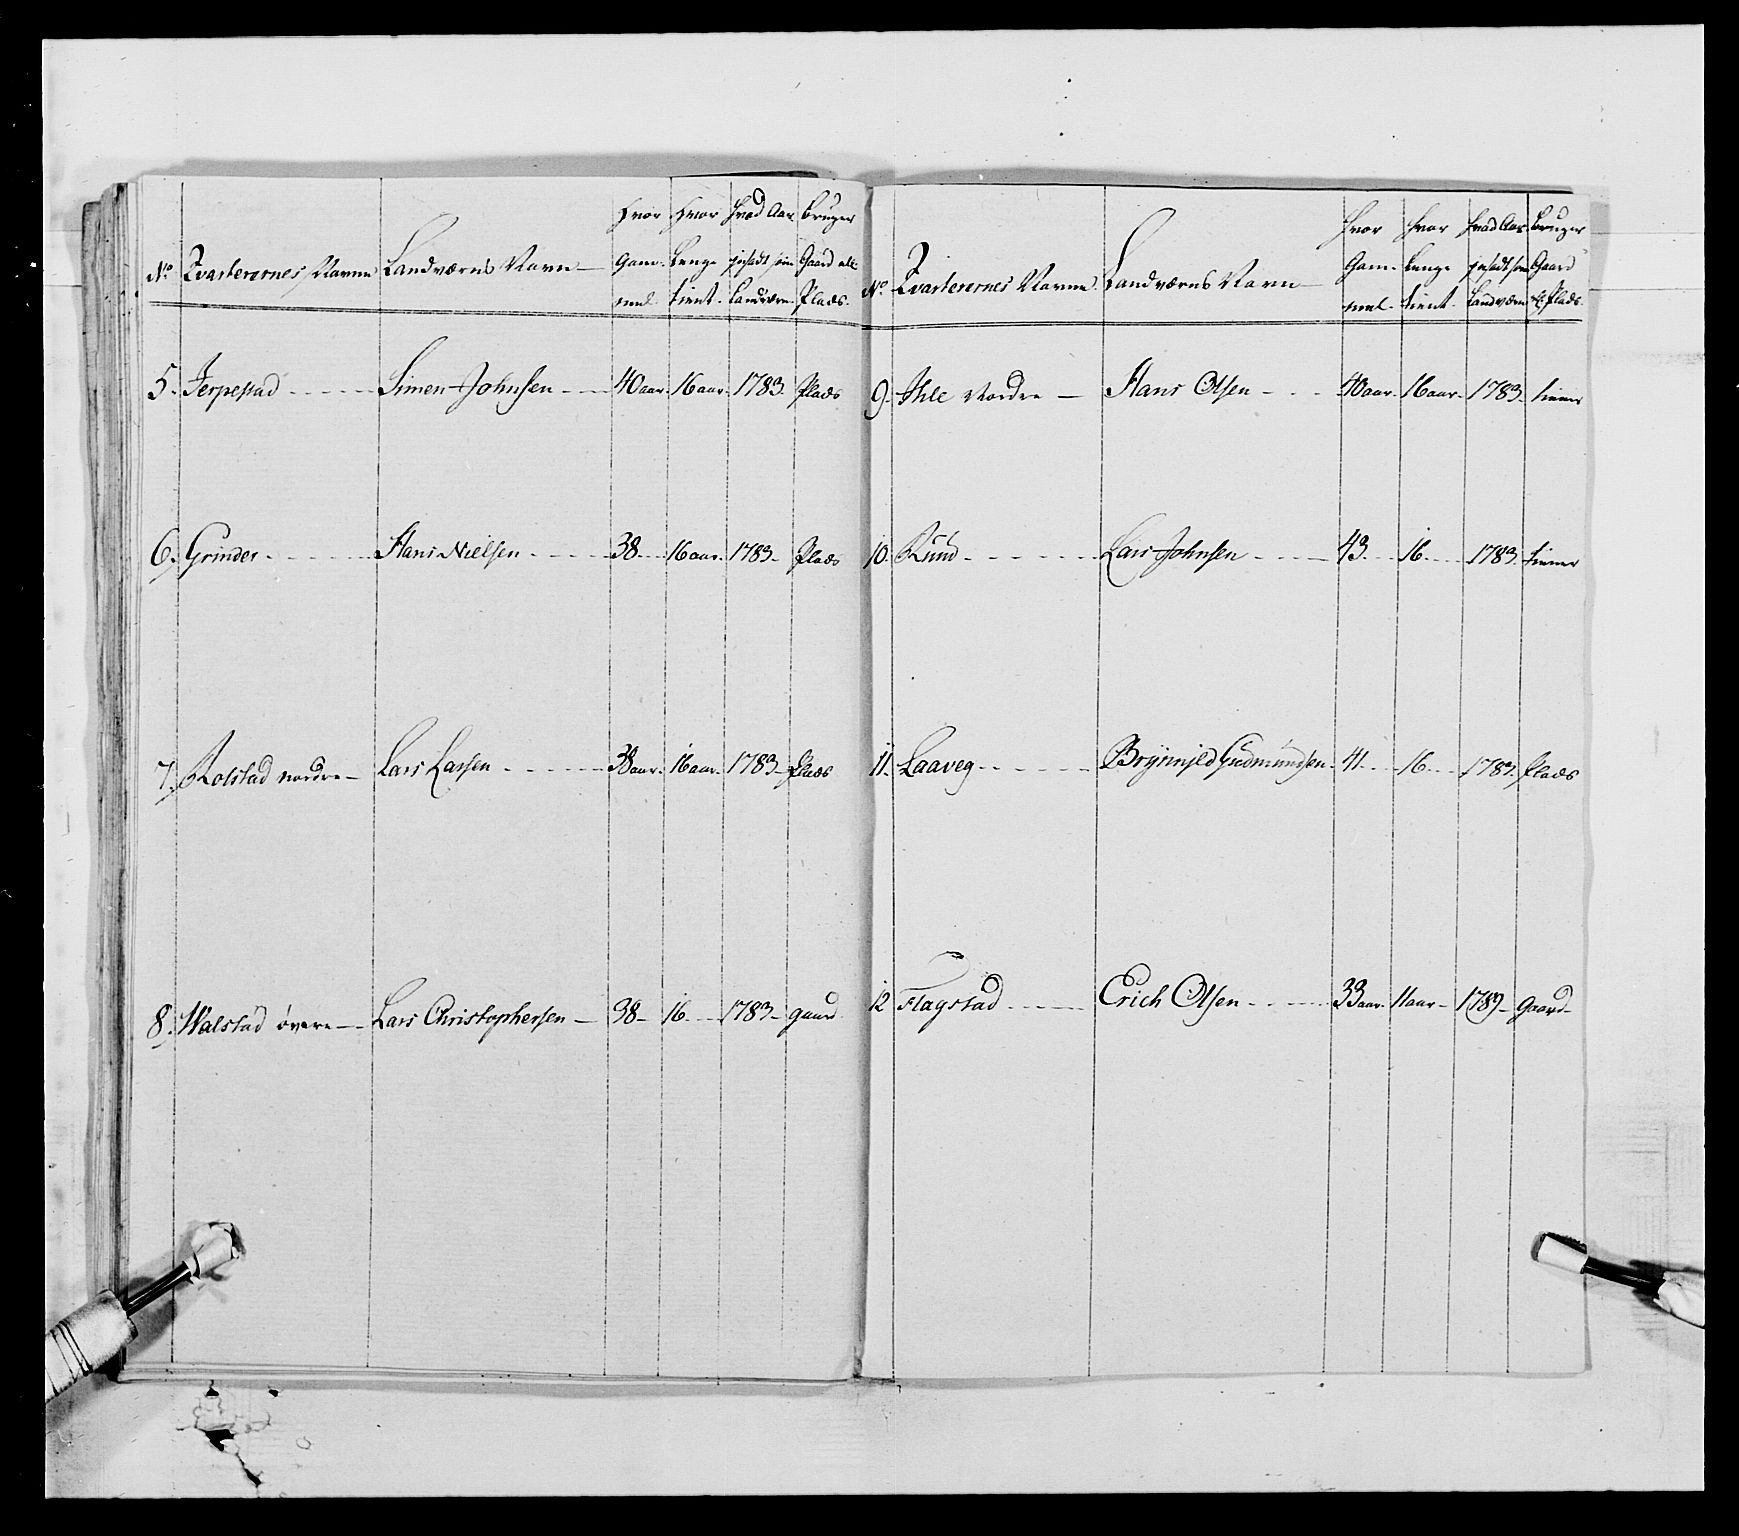 No Qvarterernes Navne Landværns Navn Hvor Gam- mel. Hvor Lenge tient. Hvad Aar ansadt som Landværn. Bruger Gaard ell. Plads.
5. Jerpestad Simen Johnsen 40 aar. 16 aar. 1783. Plads
6. Grinder Hans Nielsen 38. 16 aar. 1783. Plads
7. Rolstad nordre Lars Larsen 38 aar. 16 aar. 1783 Plads
8. Walstad övere Lars Christophersen 38 16 1783 gaard
No Qvarterernes Navne Landværns Navn Hvor Gam- mel. Hvor Lenge tient. Hvad Aar ansadt som Landværn Bruger Gaard ell. Plads.
9. Ihle Nordre Hans Olsen 40 aar. 16 aar. 1783. tiener
10. Rund Lars Johnsen 43. 16. 1783. tiener
11. Laaveg Brynnild Gudmundsen 41. 16. 1783. Plads
12 Flagstad Erich Olsen 33 aar. 11 aar 1789 Gaard